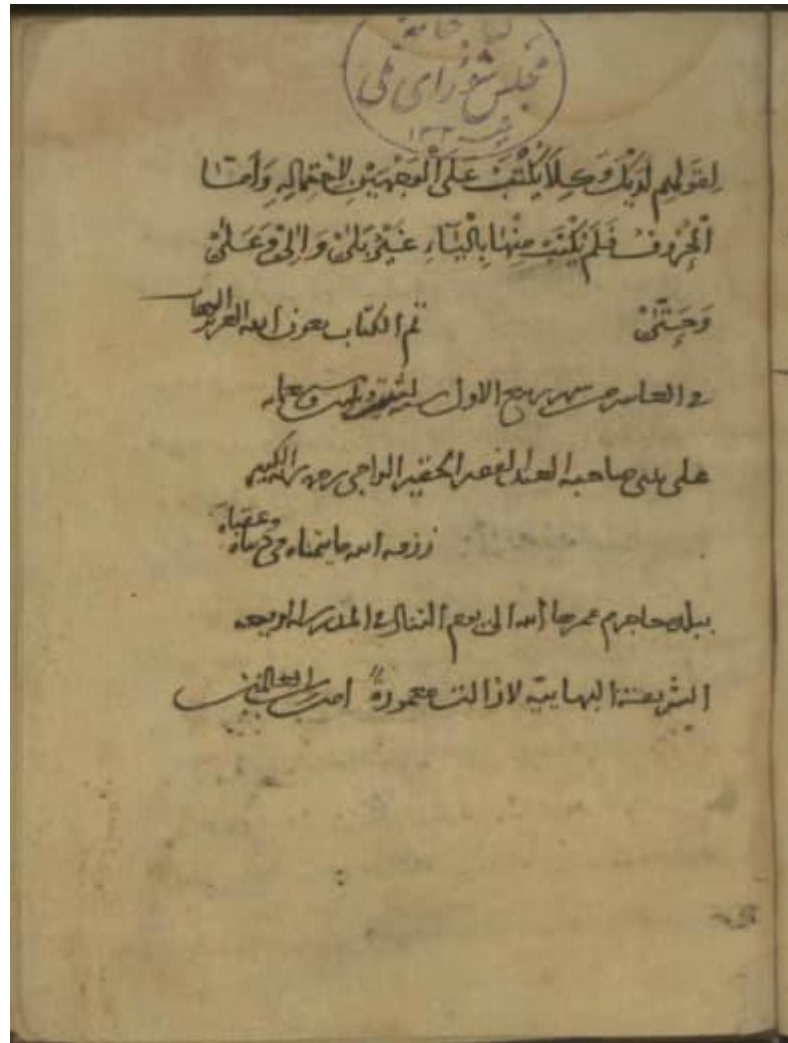 كتابخانه
مجلس شورای ملی
۱۳۰۲
لِقَوْلِهِم لَدَيْكَ وَكِلَا يُكْتَبُ عَلَى الْوَجْهَيْنِ لِاحْتِمَالِهِ وَأَمَّا
الْحُرُوفُ فَلَمْ يُكْتَبْ مِنْهَا بِالْيَاءِ غَيْرُ بَلَىٰ وَإِلَىٰ وَعَلَىٰ
وَحَتَّىٰ تم الكتاب بعون الله العزيز الوهاب
في العاشر من شهر ربيع الاول سنة وسبعمائة
على يدي صاحبه العبد الفقير الحقير الراجي
رزقه الله ما يتمناه في دنياه وعقباه
ببلدة جاجرم عمرها الله الى يوم التناد في المدرسة
الشريفة البهائية لا زالت معمورةً امين رب العالمين